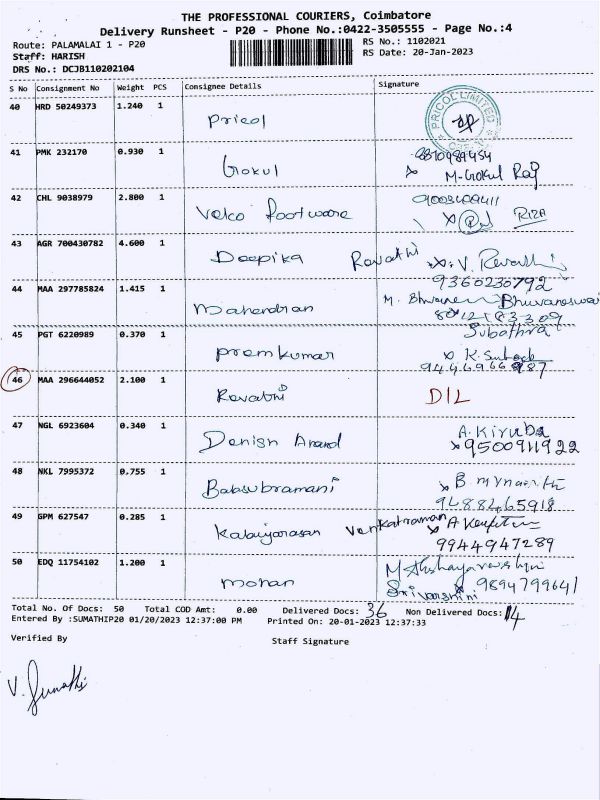 THE PROFESSIONAL COURIERS, Coimbatore
Delivery Runsheet - P20 - Phone No.:0422-3505555 - Page No.:4
Route: PALAMALAI 1 - P20
RS No.: 1102021
Staff: HARISH
RS Date: 20-Jan-2023
DRS No.: DCJB110202104
S No Consignment No Weight PCS Consignee Details Signature
40 HRD 50249373 1.240 1 Pricol
PRICOL LIMITED
41 PMK 232170 0.930 1 Gokul
M-Gokul Raj
42 CHL 9038979 2.800 1 Velco Footware
RIZA
43 AGR 700430782 4.600 1 Deepika Revathi x. V. Revathi
9360230792
44 MAA 297785824 1.415 1 Mahendran M. Bhuvaneswari
45 PGT 6220989 0.370 1 Premkumar Subathra
x K.
46 MAA 296644052 2.100 1 Revathi D/L
47 NGL 6923604 0.340 1 Denish Anand A. Kiruba
9500911922
48 NKL 7995372 0.755 1 Balsubramani
9488465918
49 GPM 627547 0.285 1 Kalaiyarasan Venkatraman
9944947289
50 EDQ 11754102 1.200 1 Mohan
Srivarshini 9894799641
Total No. Of Docs: 50 Total COD Amt: 0.00 Delivered Docs: 36 Non Delivered Docs: 14
Entered By :SUMATHIP20 01/20/2023 12:37:00 PM Printed On: 20-01-2023 12:37:33
Verified By
Staff Signature
V. Sumathi